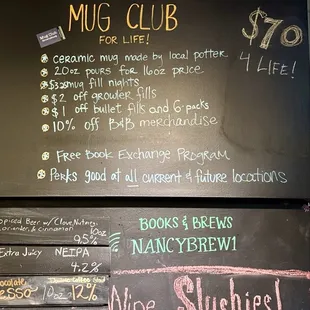 MUG CLUB
FOR LIFE!
$70
4 LIFE!
Mug Club
CERAMIC MUG MADE BY LOCAL POTTER
20oz POURS FOR 16oz PRICE
MUG FILL NIGHTS
$2 OFF GROWLER FILLS
$1 OFF BULLET FILLS AND 6-PACKS
10% OFF B&B MERCHANDISE
FREE BOOK EXCHANGE PROGRAM
PERKS GOOD AT all CURRENT & FUTURE LOCATIONS
Spiced Beer w/ Clove, Nutmeg,
Coriander, & Cinnamon
10oz
9.5%
Extra Juicy NEIPA
4.2%
10oz 12%
BOOKS & BREWS
NANCYBREW1
Wine Slushies!